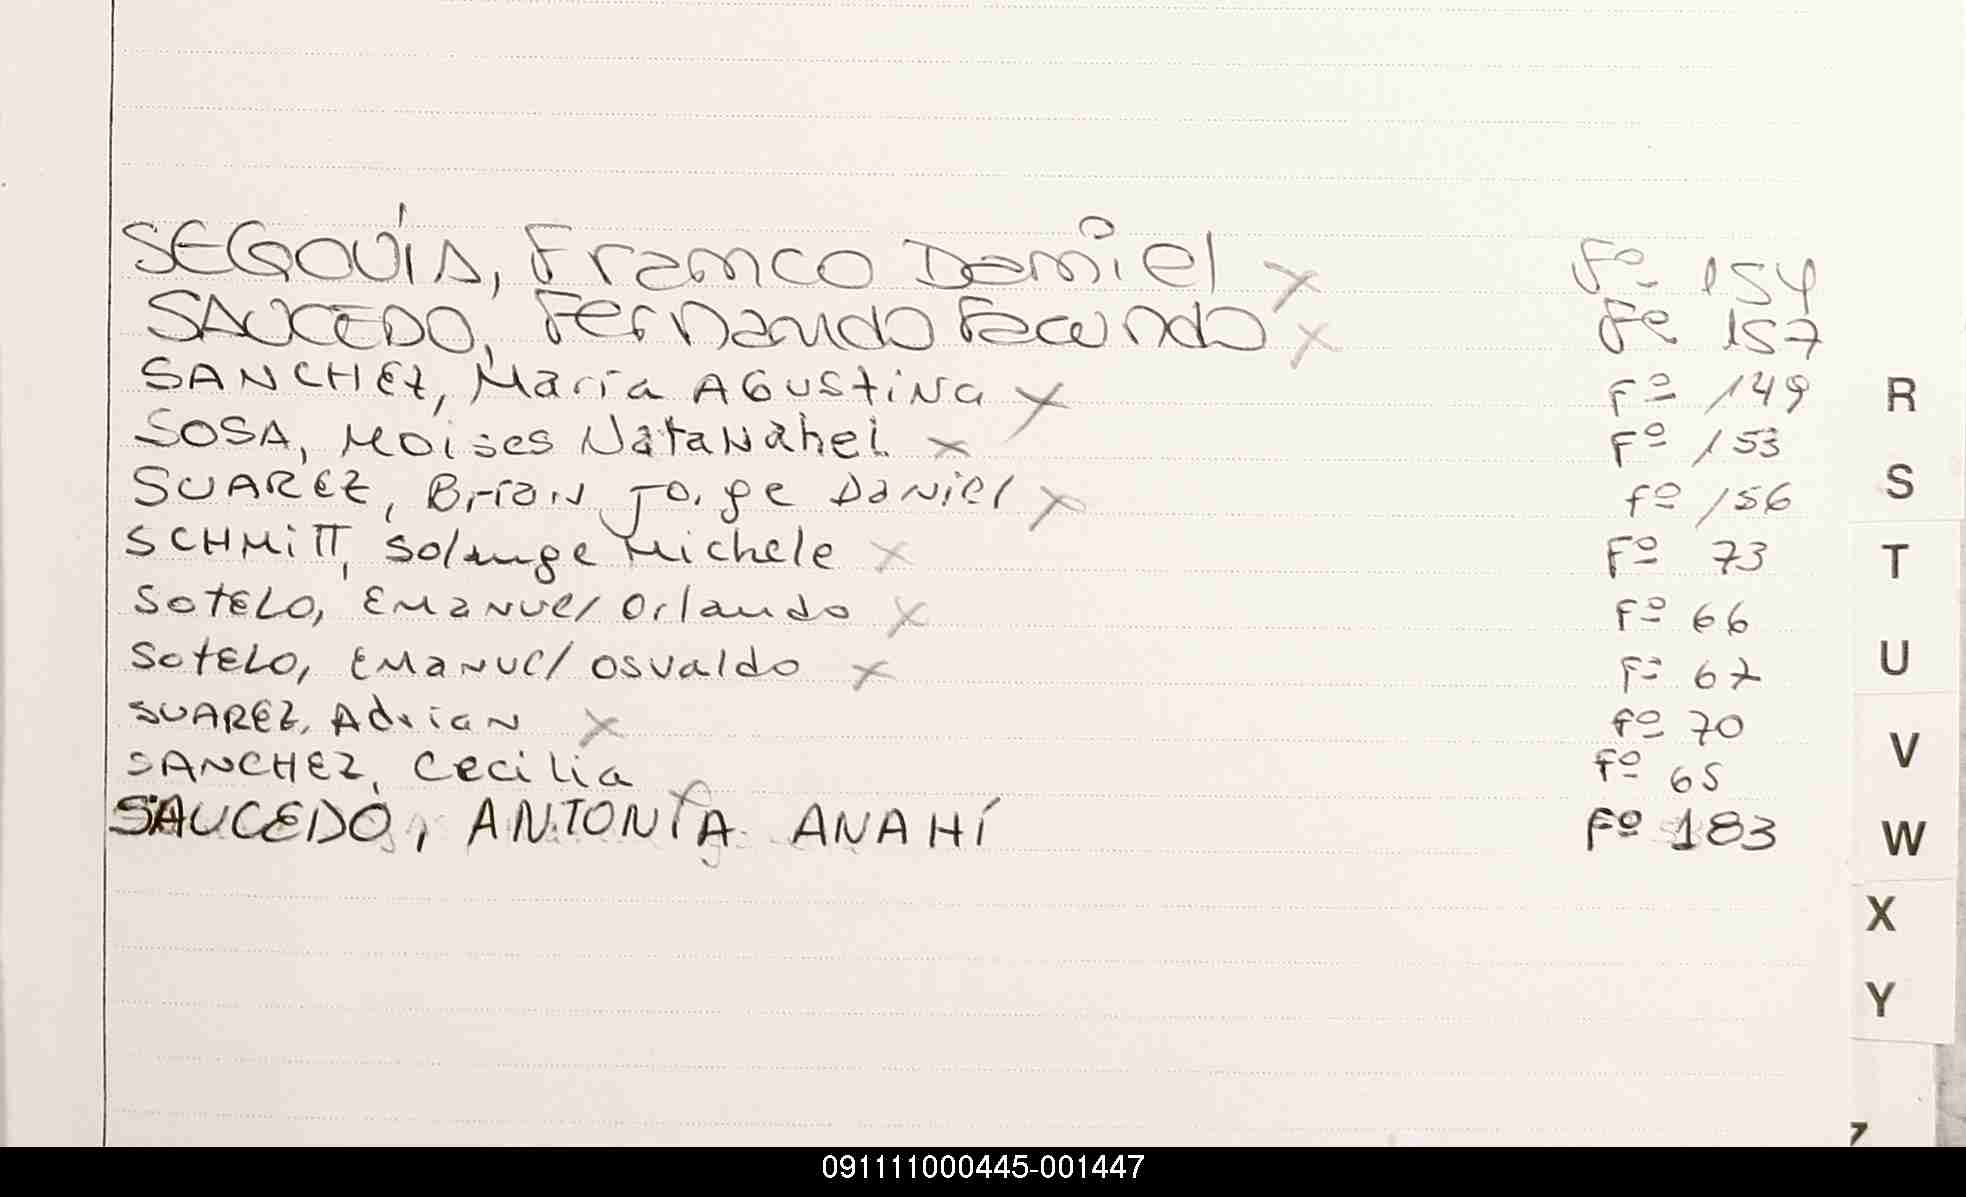 SEGOVÍA, Franco Daniel x Fº 154
SAUCEDO, Fernando Facundo x Fº 157
SANCHEZ, María AGUStiNa x Fº 149
SOSA, Moises Natanahel x Fº 153
SUAREZ, Brian Jorge Daniel x Fº 156
SCHMiTT, Solange Michele x Fº 73
SotELO, EManuel Orlando x Fº 66
SotELO, EManuel osvaldo x Fº 67
SUAREZ, Adrian x Fº 70
SANCHEZ, Cecilia x Fº 65
SAUCEDO, ANTONIA ANAHÍ Fº 183
R
S
T
U
V
W
X
Y
091111000445-001447